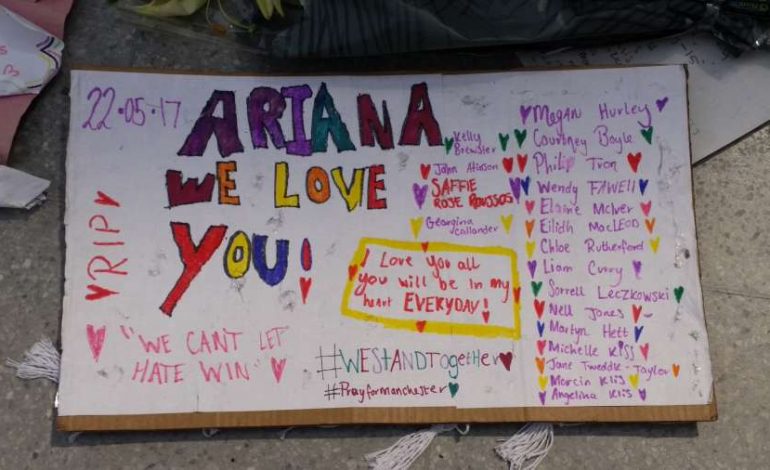 22.05.17
ARIANA
WE LOVE
YOU!
RIP
"WE CAN'T LET
HATE WIN"
Kelly
Brewster
John Atkinson
SAFFIE
ROSE ROUSSOS
Georgina
Callander
I Love you all
you will be in my
heart EVERYDAY!
#WEStANDTogetHer
#Prayformanchester
Megan Hurley
Courtney Boyle
Philip Tron
Wendy FAWELL
Elaine McIver
Eilidh MacLEOD
Chloe Rutherford
Liam Curry
Sorrell Leczkowski
Nell Jones
Martyn Hett
Michelle KiSS
Jane Tweddle-Taylor
Marcin Klis
Angelina Klis